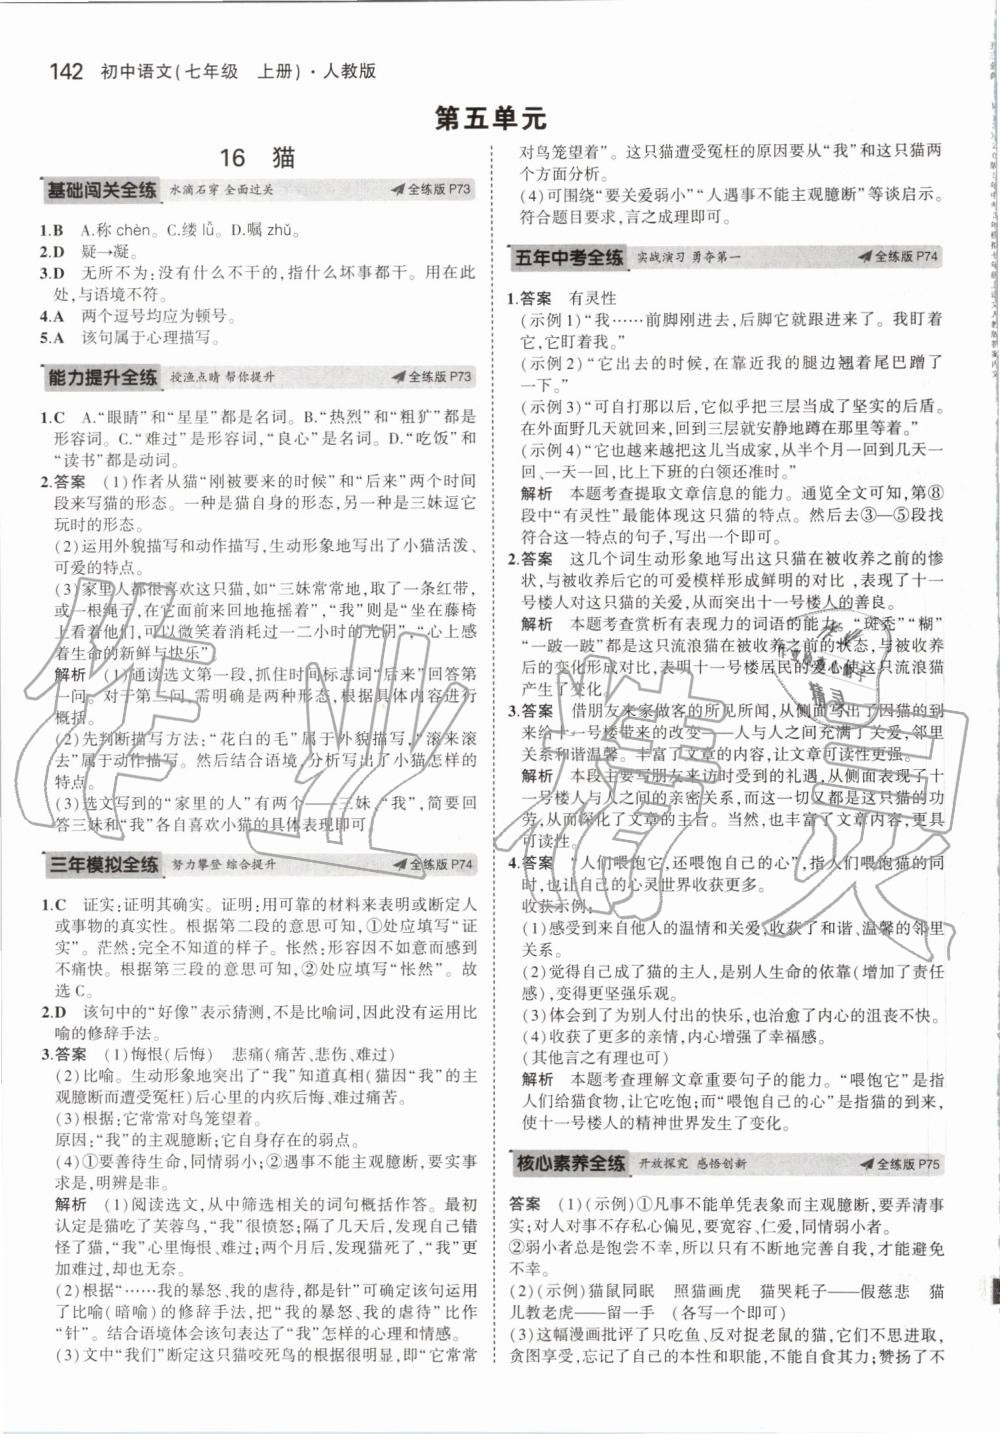 142 初中语文(七年级 上册)·人教版
第五单元
16 猫
基础闯关全练 水滴石穿 全面过关 全练版P73
1.B A.称chèn。C.缕lǚ。D.嘱zhǔ。
2.D 疑→凝。
3.D 无所不为:没有什么不干的,指什么坏事都干。用在此
处,与语境不符。
4.A 两个逗号均应为顿号。
5.A 该句属于心理描写。
能力提升全练 授渔点睛 帮你提升 全练版P73
1.C A.“眼睛”和“星星”都是名词。B.“热烈”和“粗犷”都是
形容词。C.“难过”是形容词,“良心”是名词。D.“吃饭”和
“读书”都是动词。
2.答案 (1)作者从猫“刚被要来的时候”和“后来”两个时间
段来写猫的形态。一种是猫自身的形态,另一种是三妹逗它
玩时的形态。
(2)运用外貌描写和动作描写,生动形象地写出了小猫活泼、
可爱的特点。
(3)家里人都很喜欢这只猫,如“三妹常常地,取了一条红带,
或一根绳子,在它面前来回地拖摇着”,“我”则是“坐在藤椅
上看着他们,可以微笑着消耗过一二小时的光阴”,“心上感
着生命的新鲜与快乐”。
解析 (1)通读选文第一段,抓住时间标志词“后来”回答第
一问。对于第二问,需明确是两种形态,根据具体内容进行
概括。
(2)先判断描写方法:“花白的毛”属于外貌描写,“滚来滚
去”属于动作描写。然后结合语境,分析写出了小猫怎样的
特点。
(3)选文写到的“家里的人”有两个——三妹、“我”,简要回
答三妹和“我”各自喜欢小猫的具体表现即可。
三年模拟全练 努力攀登 综合提升 全练版P74
1.C 证实:证明其确实。证明:用可靠的材料来表明或断定人
或事物的真实性。根据第二段的意思可知,①处应填写“证
实”。茫然:完全不知道的样子。怅然:形容因不如意而感到
不痛快。根据第三段的意思可知,②处应填写“怅然”。故
选C。
2.D 该句中的“好像”表示猜测,不是比喻词,因此没有运用比
喻的修辞手法。
3.答案 (1)悔恨(后悔) 悲痛(痛苦、悲伤、难过)
(2)比喻。生动形象地突出了“我”知道真相(猫因“我”的主
观臆断而遭受冤枉)后心里的内疚后悔、难过痛苦。
(3)根据:它常常对鸟笼望着。
原因:“我”的主观臆断;它自身存在的弱点。
(4)①要善待生命,同情弱小;②遇事不能主观臆断,要实事
求是,明辨是非。
解析 (1)阅读选文,从中筛选相关的词句概括作答。最初
认定是猫吃了芙蓉鸟,“我”很愤怒;隔了几天后,发现自己错
怪了猫,“我”心里悔恨、难过;两个月后,发现猫死了,“我”更
加难过,却也无奈。
(2)根据“……我的暴怒、我的虐待,都是针”可确定该句运用
了比喻(暗喻)的修辞手法,把“我的暴怒、我的虐待”比作
“针”。结合语境体会该句表达了“我”怎样的心理和情感。
(3)文中“我们”断定这只猫咬死鸟的根据很明显,即“它常常
对鸟笼望着”。这只猫遭受冤枉的原因要从“我”和这只猫两
个方面分析。
(4)可围绕“要关爱弱小”“人遇事不能主观臆断”等谈启示。
符合题目要求,言之成理即可。
五年中考全练 实战演习 勇夺第一 全练版P74
1.答案 有灵性
(示例1)“我……前脚刚进去,后脚它就跟进来了。我盯着
它,它盯着我。”
(示例2)“它出去的时候,在靠近我的腿边翘着尾巴蹭了
一下。”
(示例3)“可自打那以后,它似乎把三层当成了坚实的后盾。
在外面野几天就回来,回到三层就安静地蹲在那里等着。”
(示例4)“它也越来越把这儿当成家,从半个月一回到三天
一回、一天一回,比上下班的白领还准时。”
解析 本题考查提取文章信息的能力。通览全文可知,第⑧
段中“有灵性”最能体现这只猫的特点。然后去③—⑤段找
符合这一特点的句子,写出一个即可。
2.答案 这几个词生动形象地写出这只猫在被收养之前的惨
状,与被收养后它的可爱模样形成鲜明的对比,表现了十一
号楼人对这只猫的关爱,从而突出十一号楼人的善良。
解析 本题考查赏析有表现力的词语的能力。“斑秃”“糊”
“一跛一跛”都是这只流浪猫在被收养之前的状态,与被收养
后的变化形成对比,表明十一号楼居民的爱心使这只流浪猫
产生了变化。
3.答案 借朋友来家做客的所见所闻,从侧面写出了因猫的到
来给十一号楼带来的改变——人与人之间充满了关爱,邻里
关系和谐温馨。丰富了文章的内容,让文章可读性更强。
解析 本段主要写朋友来访时受到的礼遇,从侧面表现了十
一号楼人与人之间的亲密关系,而这一切又都是这只猫的功
劳,从而深化了文章的主旨。当然,也丰富了文章内容,更具
可读性。
4.答案 “人们喂饱它,还喂饱自己的心”,指人们喂饱猫的同
时,也让自己的心灵世界收获更多。
收获示例:
(1)感受到来自他人的温情和关爱,收获了和谐、温馨的邻里
关系。
(2)觉得自己成了猫的主人,是别人生命的依靠(增加了责任
感),变得更坚强乐观。
(3)体会到了为别人付出的快乐,也治愈了内心的沮丧不快。
(4)收获了更多的亲情,内心增强了幸福感。
(其他言之有理也可)
解析 本题考查理解文章重要句子的能力。“喂饱它”是指
人们给猫食物,让它吃饱;而“喂饱自己的心”是指猫的到来,
使十一号楼人的精神世界发生了变化。
核心素养全练 开放探究 感悟创新 全练版P75
答案 (1)(示例)①凡事不能单凭表象而主观臆断,要弄清事
实;对人对事不存私心偏见,要宽容、仁爱,同情弱小者。
②弱小者总是饱尝不幸,所以只有不断地完善自我,才能避免
不幸。
(2)(示例)猫鼠同眠 照猫画虎 猫哭耗子——假慈悲 猫
儿教老虎——留一手 (各写一个即可)
(3)这幅漫画批评了只吃鱼、反对捉老鼠的猫,它们不思进取,
贪图享受,忘记了自己的本性和职能,不能自食其力;赞扬了不
作业精灵